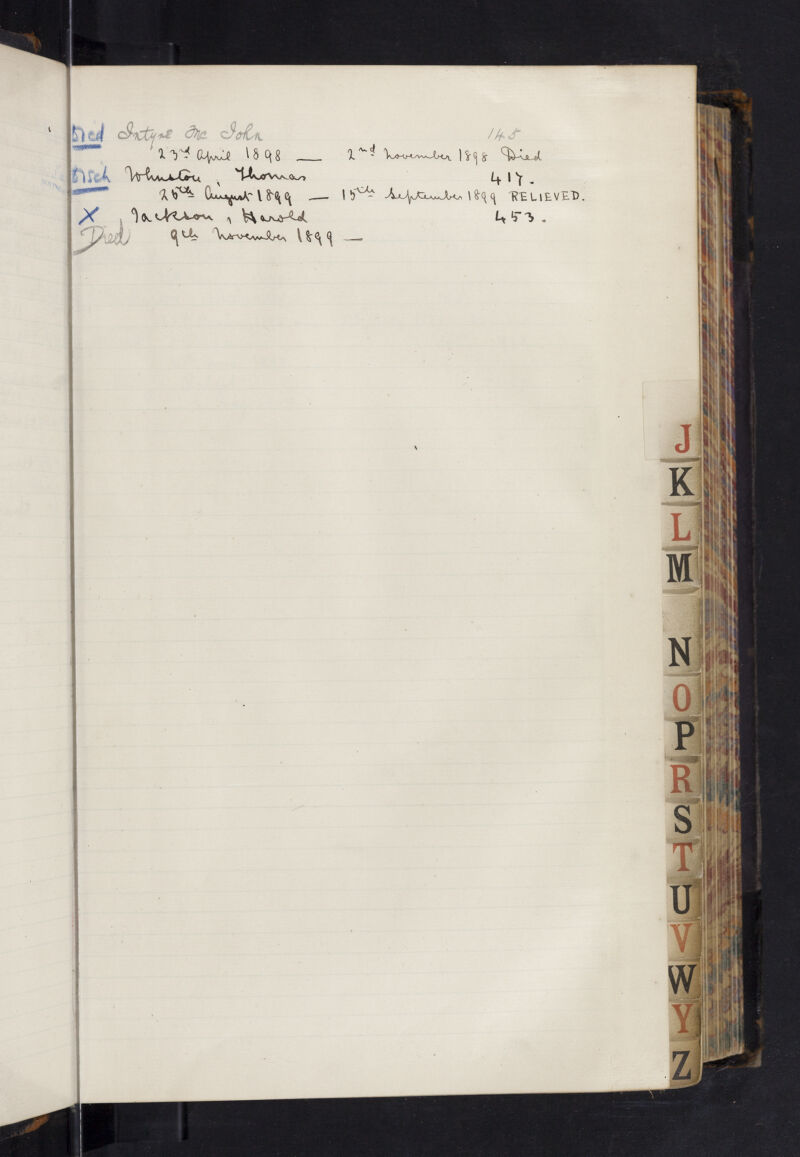 Died Intyre Mc John 145
23rd April 1898 — 2nd November 1898 Died
Disch Johnston, Thomas 417.
25th August 1899 — 15th September 1899 RELIEVED.
X Jackson, Harold 453.
Died 9th November 1899 —
J
K
L
M
N
O
P
R
S
T
U
V
W
Y
Z